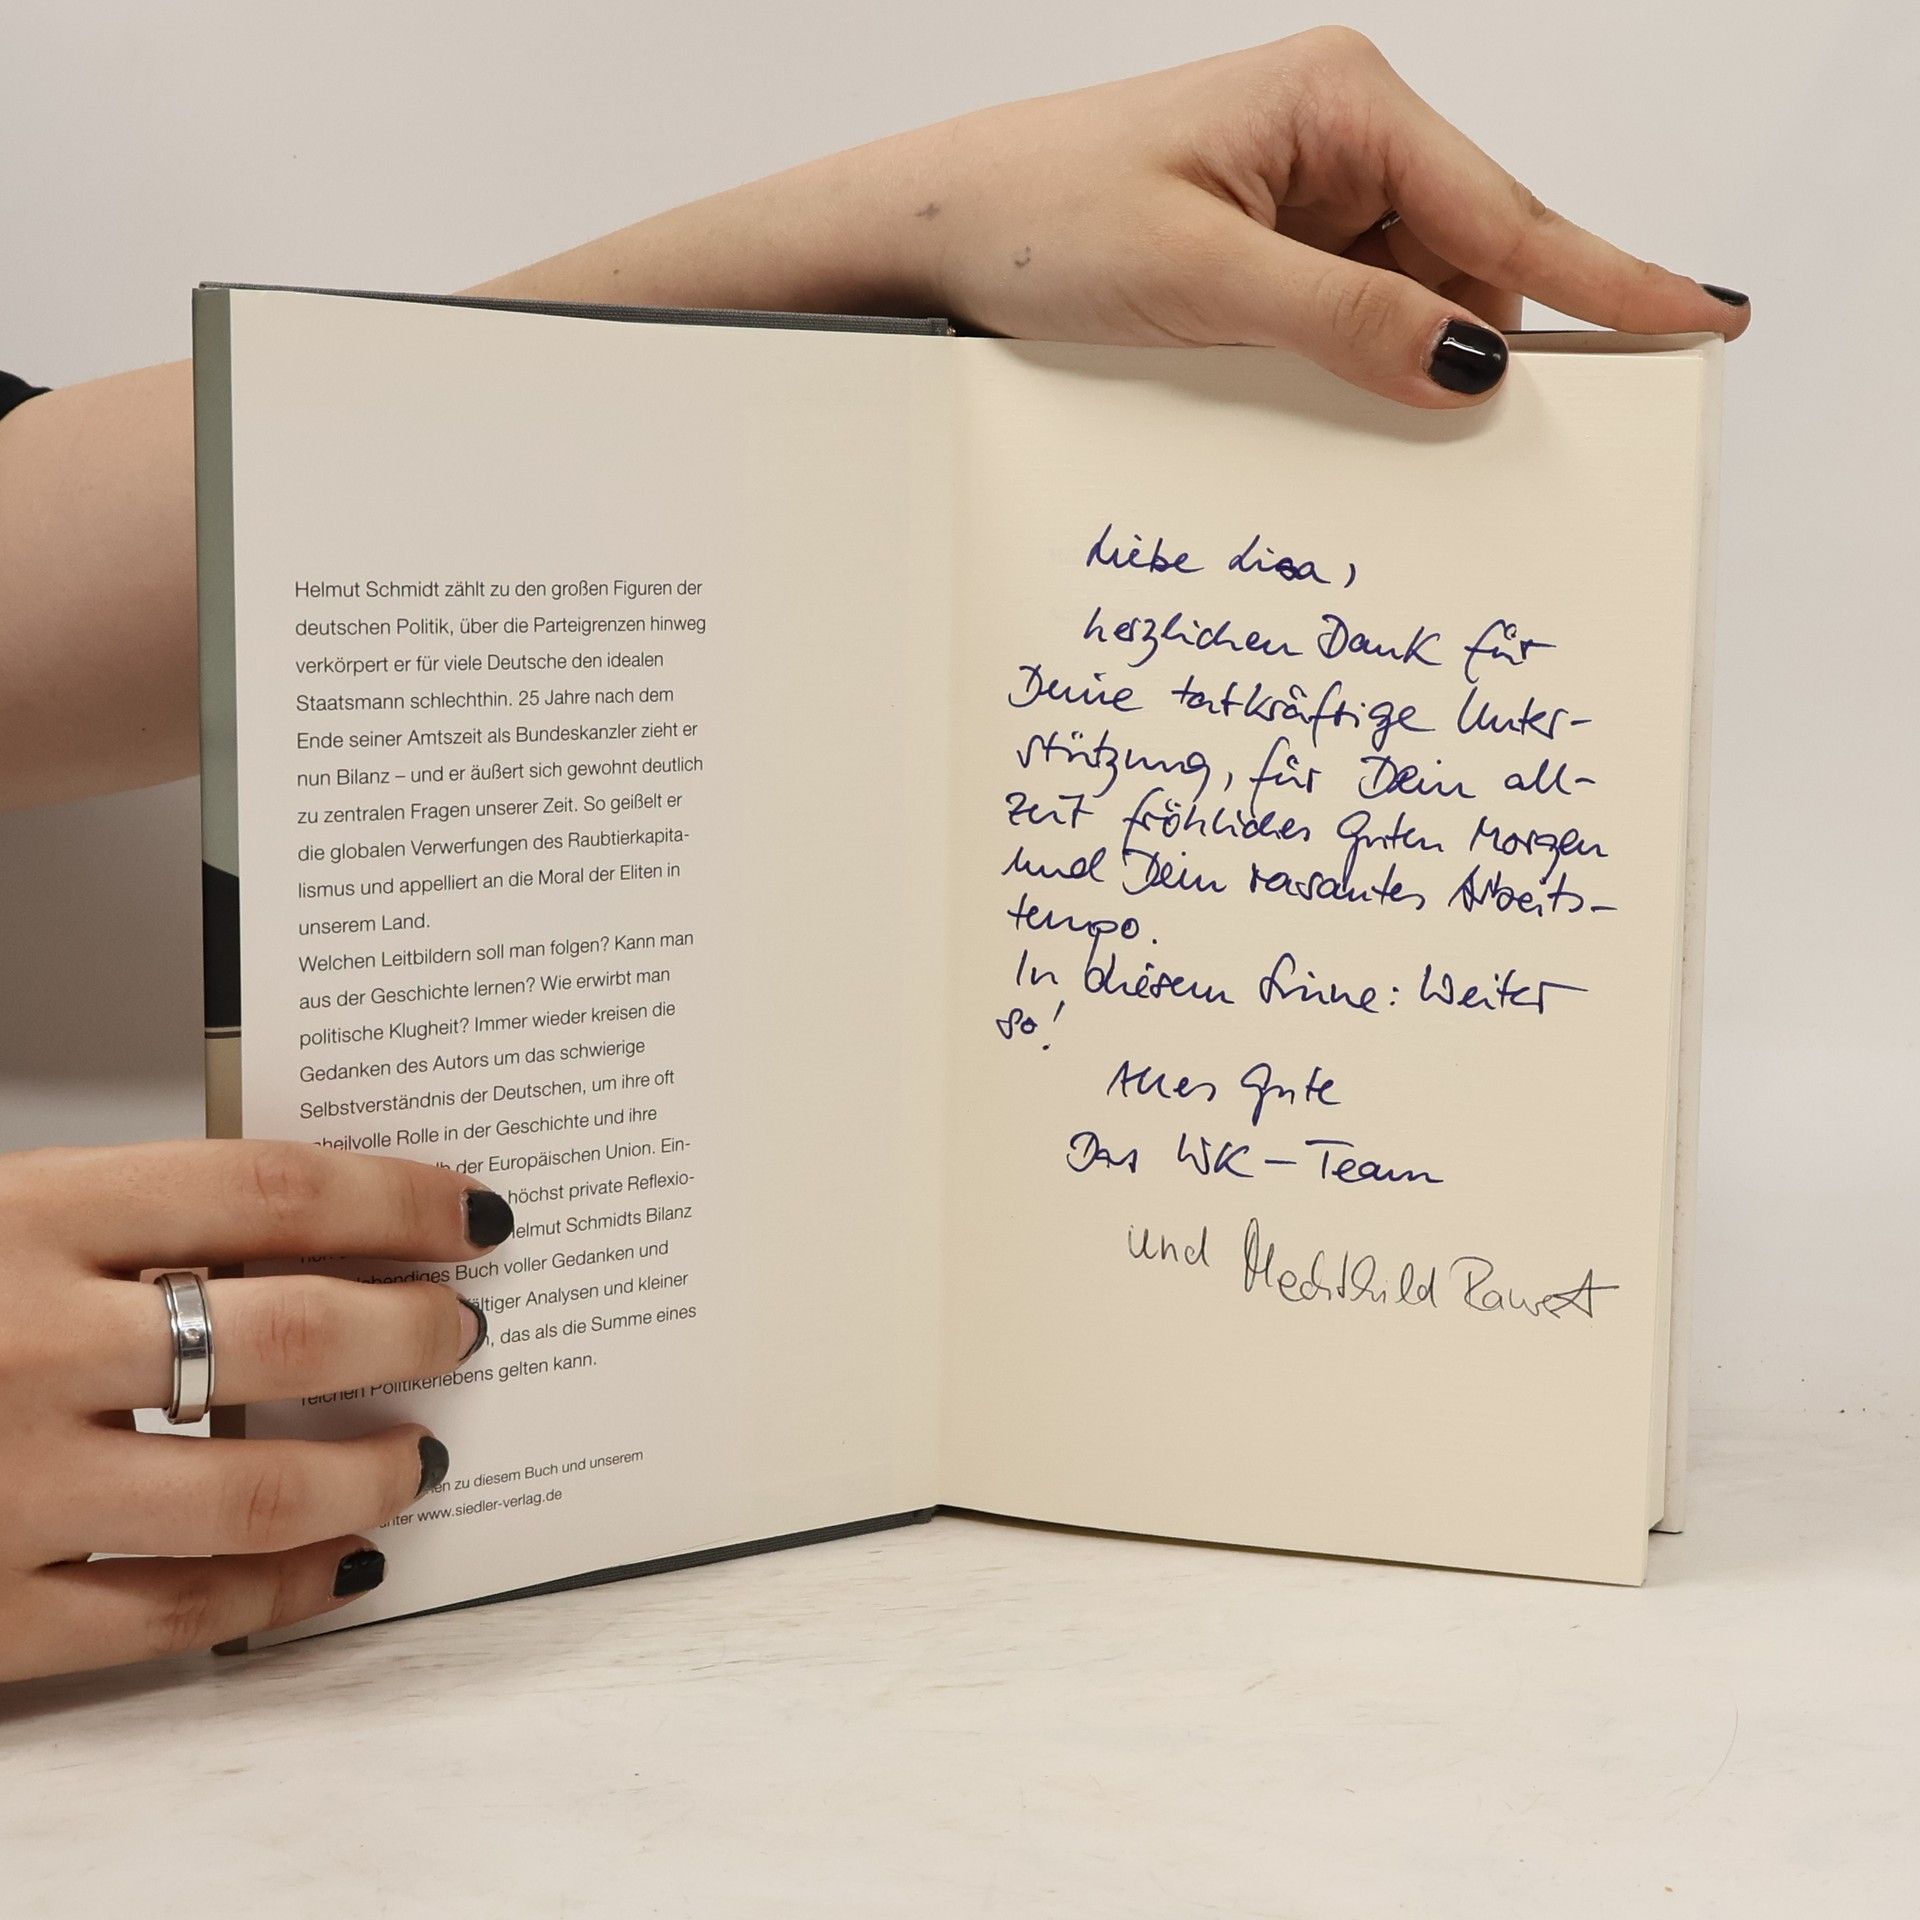 Helmut Schmidt zählt zu den großen Figuren der
deutschen Politik, über die Parteigrenzen hinweg
verkörpert er für viele Deutsche den idealen
Staatsmann schlechthin. 25 Jahre nach dem
Ende seiner Amtszeit als Bundeskanzler zieht er
nun Bilanz – und er äußert sich gewohnt deutlich
zu zentralen Fragen unserer Zeit. So geißelt er
die globalen Verwerfungen des Raubtierkapita-
lismus und appelliert an die Moral der Eliten in
unserem Land.
Welchen Leitbildern soll man folgen? Kann man
aus der Geschichte lernen? Wie erwirbt man
politische Klugheit? Immer wieder kreisen die
Gedanken des Autors um das schwierige
Selbstverständnis der Deutschen, um ihre oft
heilvolle Rolle in der Geschichte und ihre
der Europäischen Union. Ein-
höchst private Reflexio-
elmut Schmidts Bilanz
bendiges Buch voller Gedanken und
ältiger Analysen und kleiner
, das als die Summe eines
reichen Politikerlebens gelten kann.
en zu diesem Buch und unserem
unter www.siedler-verlag.de
Liebe Lisa,
herzlichen Dank für
Deine tatkräftige Unter-
stützung, für Dein all-
zeit fröhliches Guten Morgen
und Dein rasantes Arbeits-
tempo.
In diesem Sinne: Weiter
so!
Alles Gute
Das WK-Team
und Mechthild Rawert